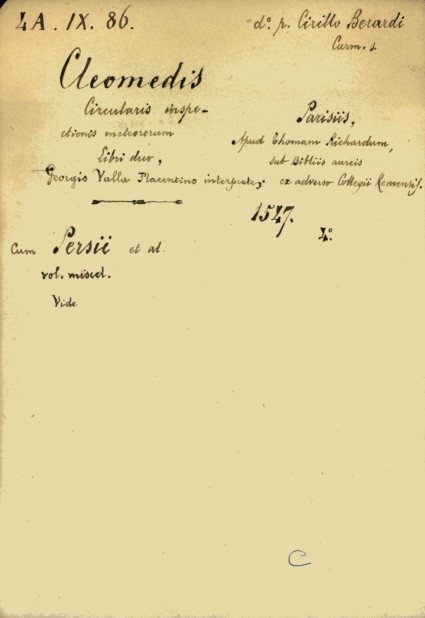 4A. IX. 86.
dº. p. Cirillo Berardi
Carm. s.
Cleomedis
Circularis inspe-
ctionis meteororum
Libri duo,
Georgio Valla Placentino interprete,
Parisiis,
Apud Thomam Richardum,
sub Bibliis aureis
ex adverso Collegii Remensis.
1547.
4º.
Cum Persii et al.
vol. miscel.
Vide
C